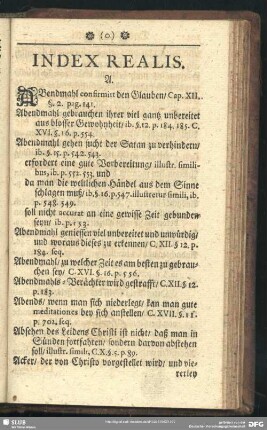 (o)
INDEX REALIS.
A.
ABendmahl confirmirt den Glauben/ Cap. XII.
§. 2. pag. 141.
Abendmahl gebrauchen ihrer viel gantz unbereitet
aus blosser Gewohnheit/ ib. §. 12. p. 184. 185. C.
XVI. §. 16. p. 554.
Abendmahl gehen sucht der Satan zu verhindern/
ib. §. 15. p. 542. 543.
erfordert eine gute Vorbereitung/ illustr. simili-
bus, ib. p. 552. 553. und
da man die weltlichen Händel aus dem Sinne
schlagen muß/ ib. §. 16. p. 547. illustratur simili, ib.
p. 548. 549.
soll nicht accurat an eine gewisse Zeit gebunden
seyn/ ib. p. 153.
Abendmahl geniessen viel unbereitet und unwürdig/
und woraus dieses zu erkennen/ C. XII. § 12. p.
184. seq.
Abendmahl/ zu welcher Zeit es am besten zu gebrau-
chen sey/ C. XVI. §. 16. p. 556.
Abendmahls-Verächter wird gestrafft/ C. XII. § 12.
p. 183.
Abends/ wenn man sich niederlegt/ kan man gute
meditationes bey sich anstellen/ C. XVII. §. 11.
p. 702. seq.
Absehen des Leidens Christi ist nicht/ daß man in
Sünden fortfahren/ sondern darvon abstehen
soll/ illustr. simib. C. X. §. 5. p. 89.
Acker/ der von Christo vorgestellet wird/ und vie-
rerley
SLUB
DFG